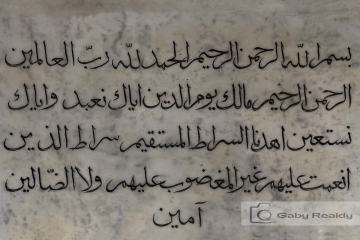 بسم الله الرحمن الرحيم الحمد لله ربّ العالمين
الرحمن الرحيم مالك يوم الدين اياك نعبد واياك
نستعين اهدنا السراط المستقيم سراط الذين
انعمت عليهم غير المغضوب عليهم ولا الضّالين
آمين
Gaby Reaidy